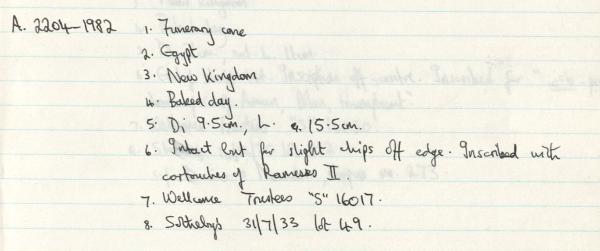 A. 2204–1982 1. Funerary cone
2. Egypt
3. New Kingdom
4. Baked clay.
5. D, 9.5cm., L. a. 15.5cm.
6. Intact but for slight chips off edge. Inscribed with
cartouches of Rameses II.
7. Wellcome Trustees "S" 16017.
8. Sotheby's 31/7/33 lot 49.